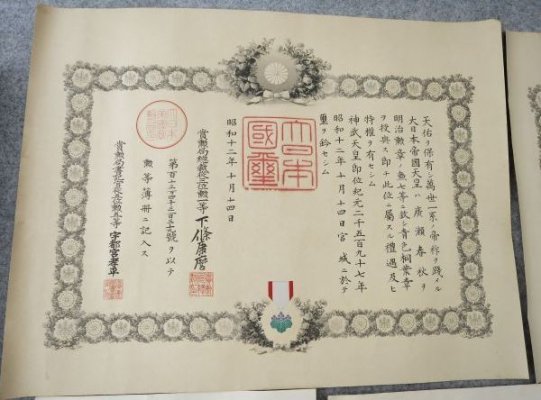 天佑ヲ保有シ萬世一系ノ帝祚ヲ踐ミタル
大日本帝國天皇ハ廣瀬春秋ヲ
明治勲章ノ勲七等ニ敘シ青色桐葉章
ヲ授與ス即チ此位ニ屬スル禮遇及ヒ
特權ヲ有セシム
神武天皇即位紀元二千五百九十七年
昭和十二年十月十四日宮城ニ於テ
璽ヲ鈐セシム
大日本國璽
昭和十二年十月十四日
賞勲局總裁從三位勲一等下條康麿
第百
號ヲ以テ
勲等簿冊ニ記入ス
賞勲局書記官
宇都宮孝平